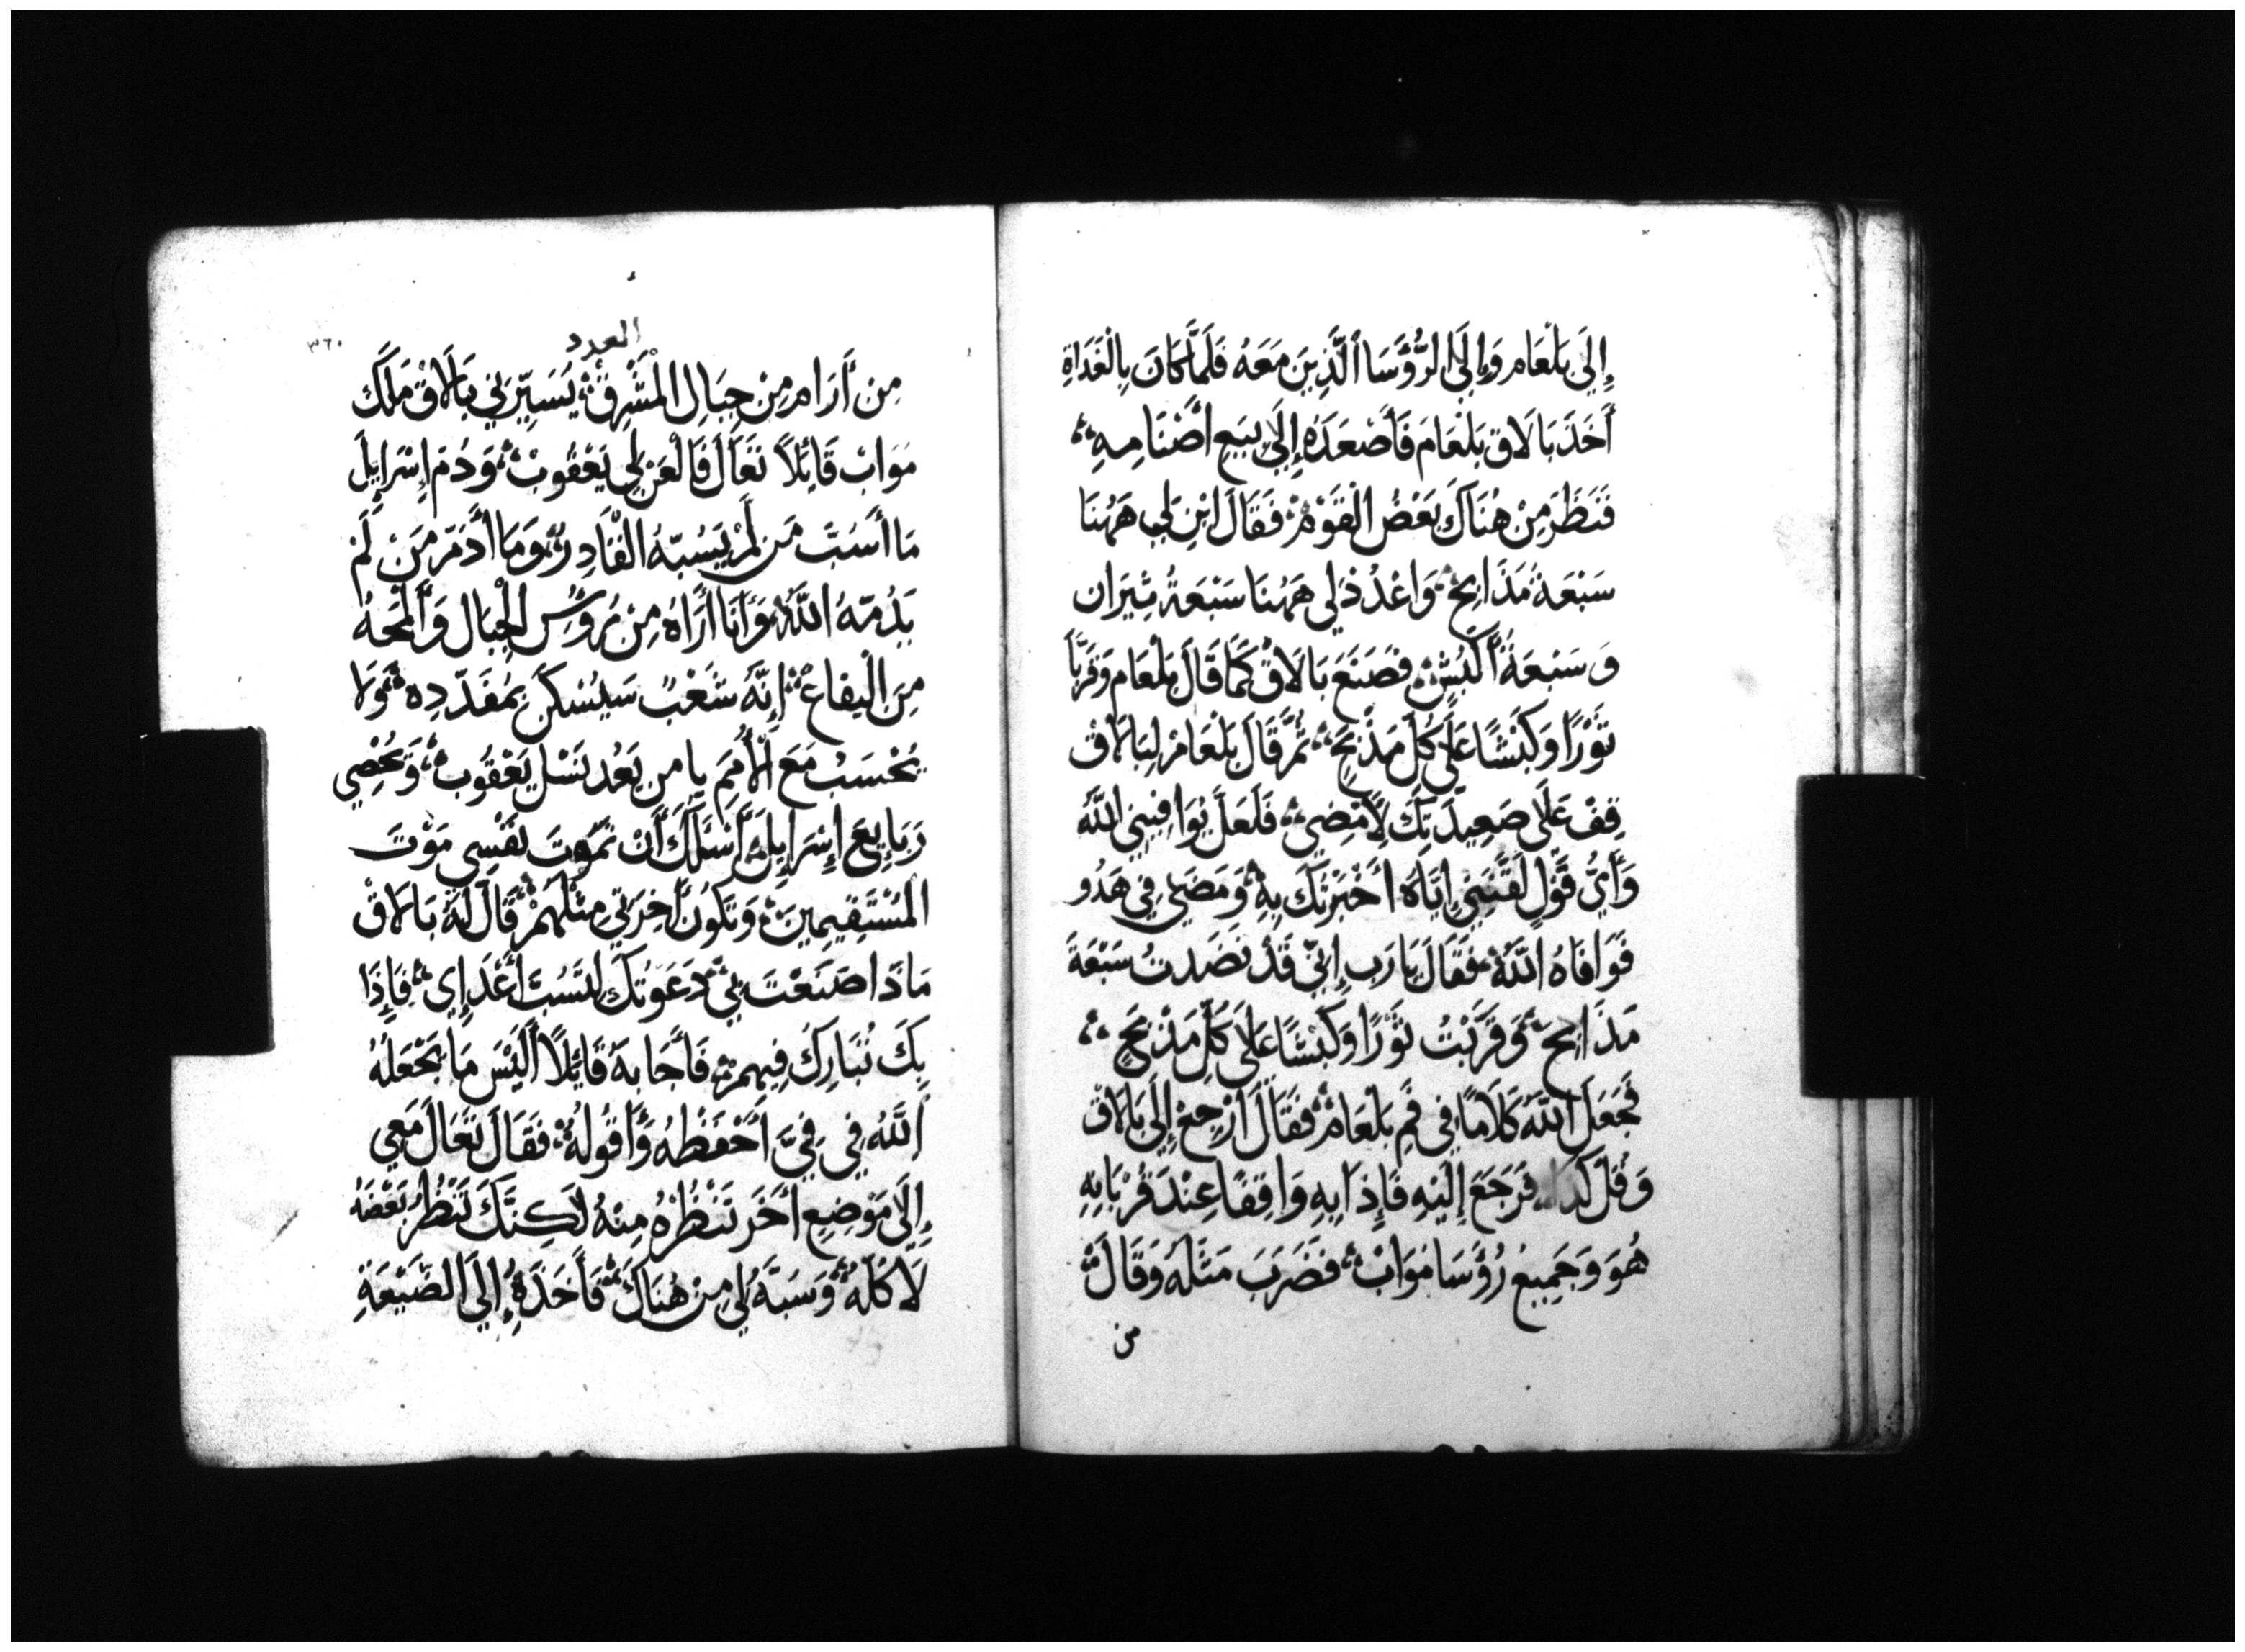 إِلَى بَلْعَام وَإِلَى الرُّؤَسَا الَّذِينَ مَعَهُ فَلَمَّا كَانَ بِالْغَدَاةِ
أَخَذَ بَالَاق بَلْعَامَ فَأَصْعَدَهُ إِلَى بِيَعِ أَصْنَامِهِ
فَنَظَرَ مِنْ هُنَاكَ بَعْضُ الْقَوْمْ فَقَالَ ابْنِ لِي هَهُنَا
سَبْعَةُ مَذَابِحْ وَاعْدُدْ لِي هَهُنَا سَبْعَةُ ثِيَرَان
وَسَبْعَةُ أَكْبُشْ فَصَنَعَ بَالَاقْ كَمَا قَالَ بَلْعَام وَقَرَّبَا
ثَوْرًا وَكَبْشًا عَلَى كُلّ مَذْبَحٍ ثُمَّ قَالَ بَلْعَامْ لِبَالَاقْ
قِفْ عَلَى صَعِيدَتِكَ لِأَمْضِي فَلَعَلَّ يُوَافِينِي اللَّهُ
وَأَيُّ قَوْلٍ لَقَّنَنِي إِيَّاهُ أَخْبَرْتُكَ بِهِ وَمَضَى فِي هَدُو
فَوَافَاهُ اللَّهُ فَقَالَ يَا رَب إِنِّي قَدْ نَضَدتُ سَبْعَةَ
مَذَابِحَ وَقَرَّبْتُ ثَوْرًا وَكَبْشًا عَلَى كُلِّ مَذْبَحٍ
فَجَعَلَ اللَّهُ كَلَامًا فِي فَمِ بَلْعَامْ فَقَالَ ارْجِعْ إِلَى بَالَاقْ
وَقُلْ كَذَا فَرَجَعَ إِلَيْهِ فَإِذَا بِهِ وَاقِفًا عِنْدَ قُرْبَانِهِ
هُوَ وَجَمِيعُ رُؤَسَا مُوَابْ فَضَرَبَ مَثَلَهُ وَقَالَ
من
العدد
٣٦٠
مِن أَرَام مِنْ جِبَالِ الْمَشْرِقْ يُسَيِّرُنِي بَالَاقْ مَلَكَ
مَوَابْ قَائِلًا تَعَالَ فَالْعَنْ لِي يَعْقُوبْ وَدُمّ إِسْرَايِلَ
مَا أَسُبّ مَن لَمْ يَسُبّهُ الْقَادِرْ وَمَا أَدُمّ مَنْ لَمْ
يَدُمّهُ اللَّهُ وَأَنَا أَرَاهُ مِنْ رُؤُسِ الْجِبَال وَأَلْمَحَهُ
مِنَ الْيفاعْ إِنَّهُ شَعْبٌ سَيُسْكَن بِمُفَدّدِه وَلا
يُحْسَبْ مَعَ الْأُمَمِ يا من يَعُد نَسْلَ يَعْقُوبْ وَيُحْصِي
رَبَايِعَ إِسْرَايِلَ أَسْئَلَكَ أَنْ تَمُوتَ نَفْسِي مَوْتَ
الْمُسْتَقِيمِينَ وَتَكُونَ أَخِرَتِي مِثْلَهُمْ قَالَ لَهُ بَالَاقْ
مَاذَا صَنَعْتَ بِي دَعَوْتُكَ لِتَسُبّ أَعْدَاي فَإِذَا
بِكَ تُبَارِكُ فِيهِمْ فَأَجَابهُ قَائِلًا أَلَيْسَ مَا يَجْعَلُهُ
اللَّهُ فِي فِيَّ أَحْفَظْهُ وَأَقُولهُ فَقَالَ تَعَالَ مَعِي
إِلَى مَوْضِعٍ أَخَر تَنْظُرُهُ مِنْهُ لَكِنَّكَ تَنْظُر بَعْضَهُ
لَا كُلّهُ وَسَبّهُ لِي مِنْ هُنَاكَ فَأَخَذَهُ إِلَى الضَّيْعَةِ